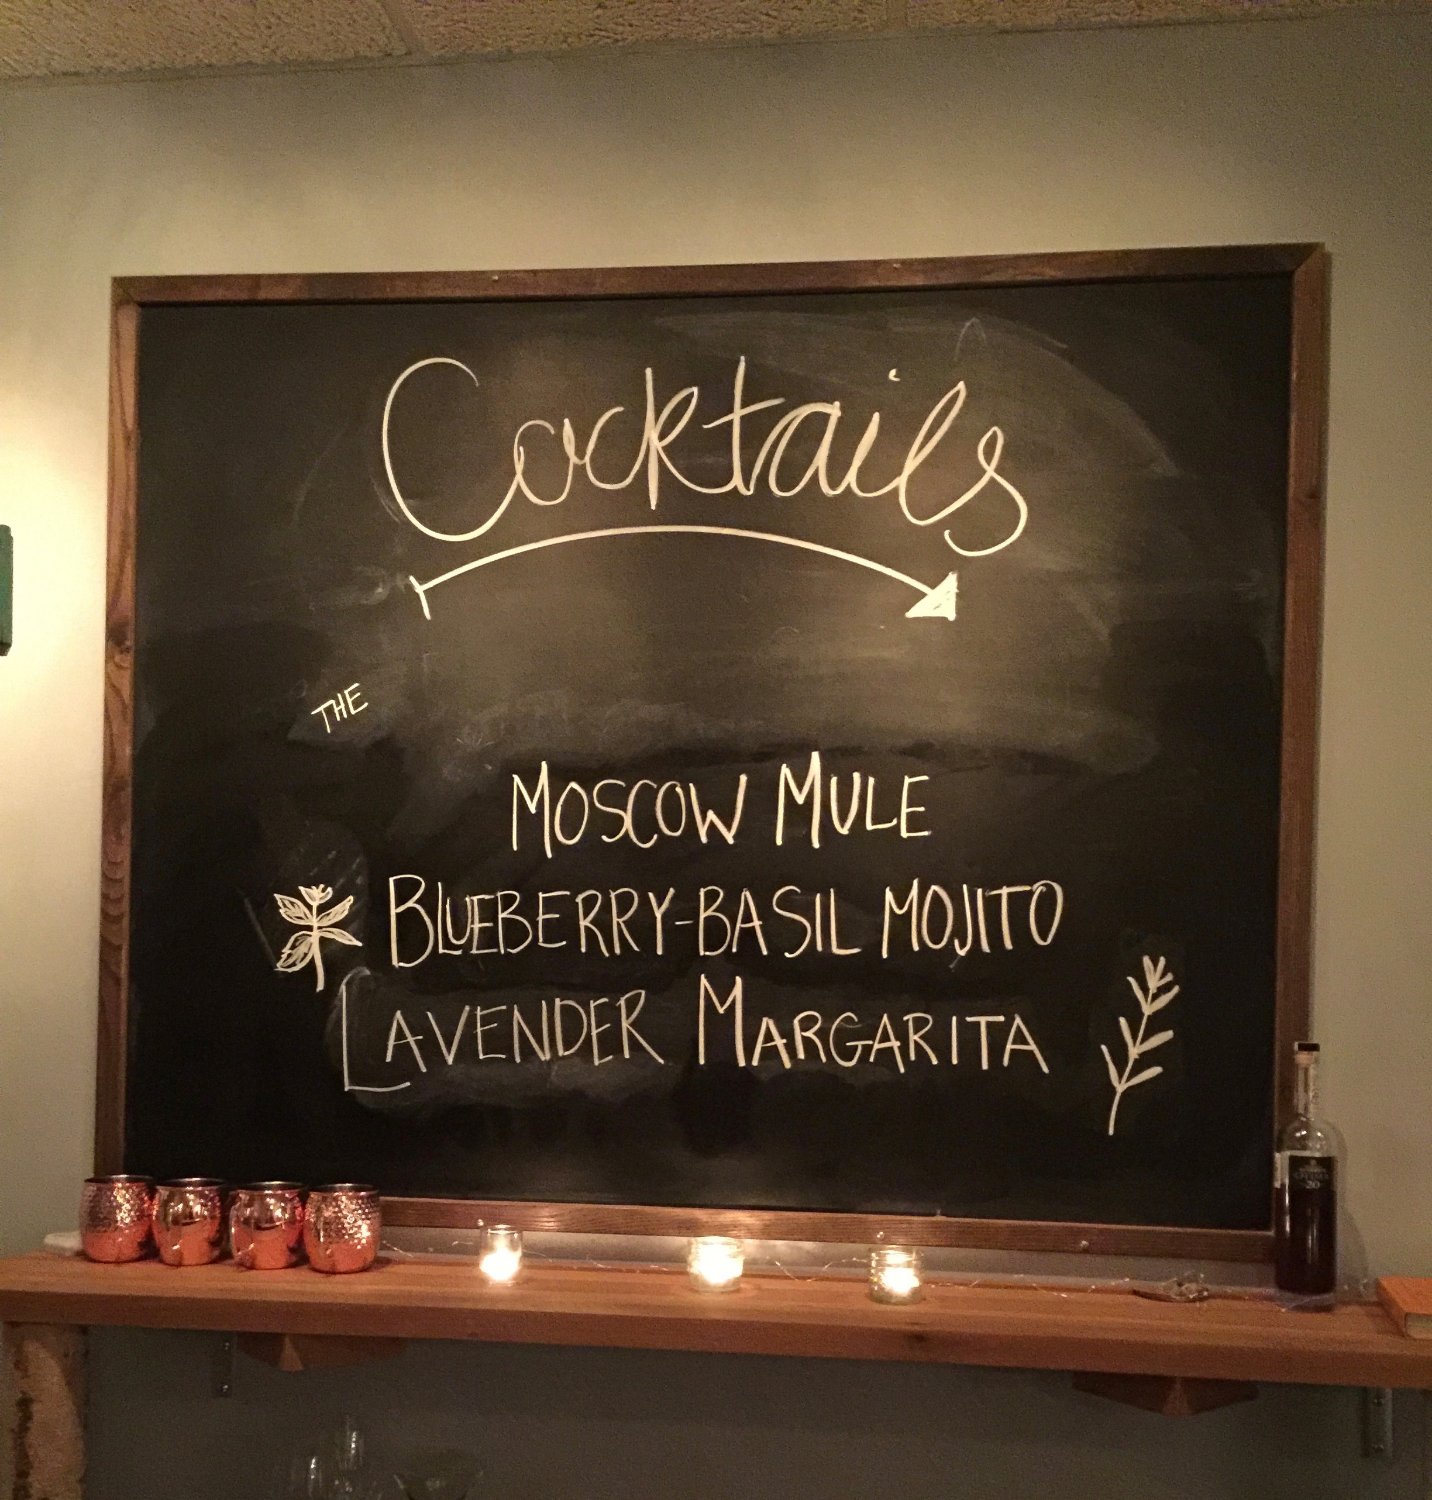 Cocktails
THE
MOSCOW MULE
BLUEBERRY-BASIL MOJITO
LAVENDER MARGARITA
20